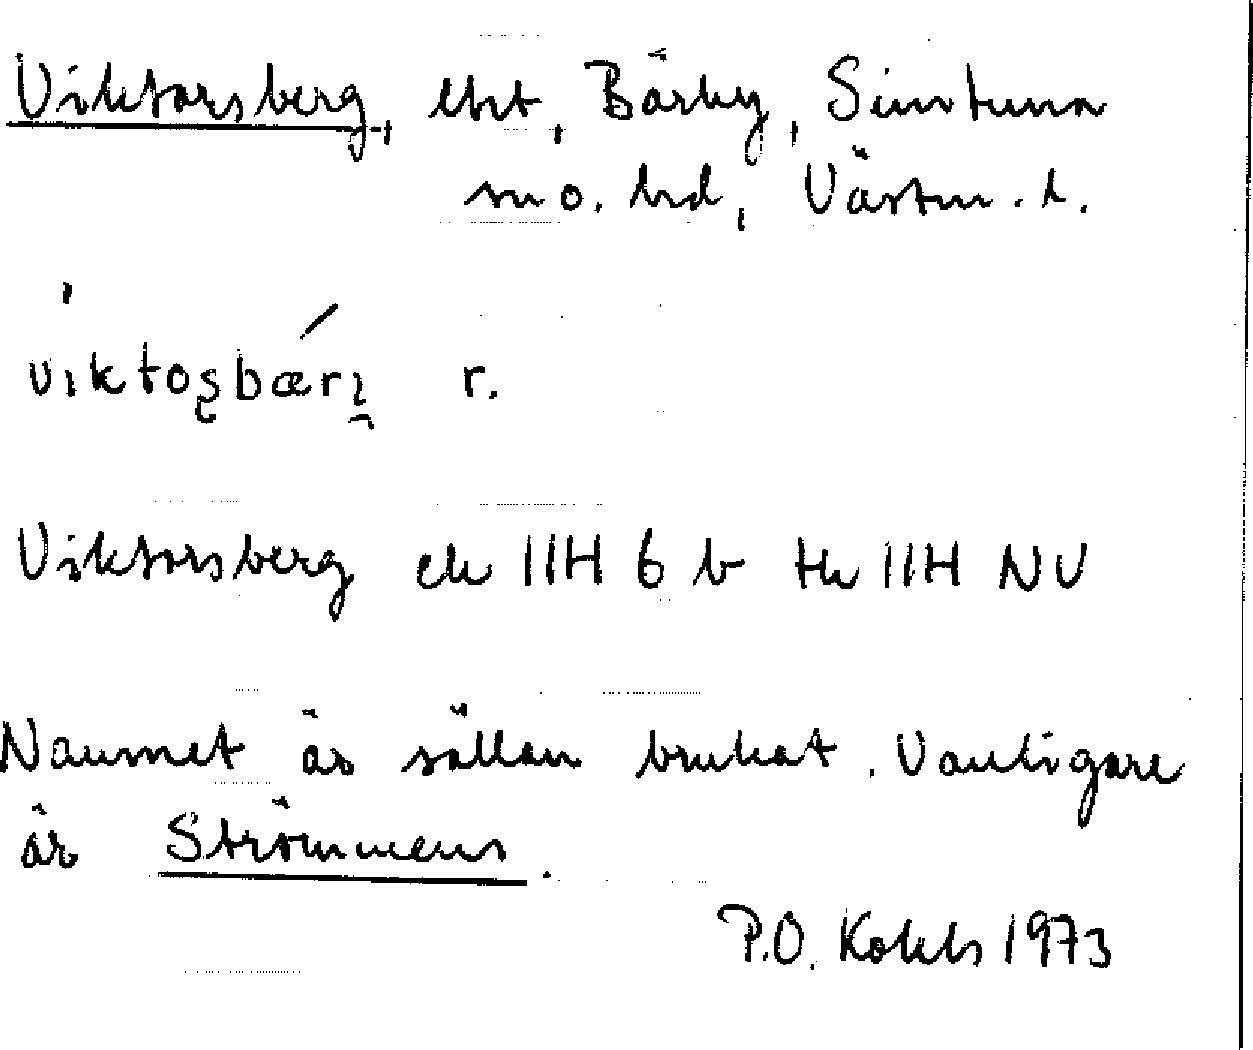 Viktorsberg, lht, Bärby, Simtuna
sn o. hd, Västm. l.
viktos̨bærı̯ r.
Viktorsberg ek 11H 6 b tk 11H NV
Namnet är sällan brukat. Vanligare
är Strömmens.
P.O. Kohls 1973